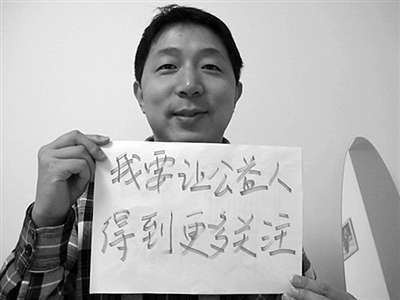 我要让公益人
得到更多关注